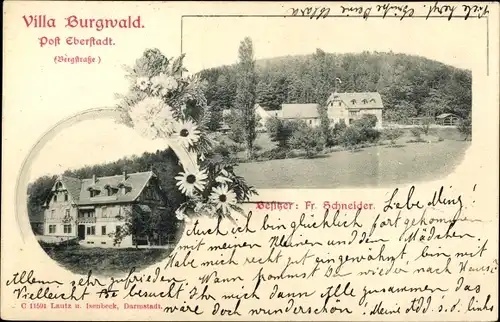 Villa Burgwald.
Post Eberstadt.
(Bergstraße)
Besitzer: Fr. Schneider.
Liebe Ming!
Auch ich bin glücklich fort gekommen
mit meinen Kleinen und den Mädchen
Habe mich recht gut eingewöhnt, bin mit
Allem sehr zufrieden. Wann kommst Du wieder nach Hause?
Vielleicht besucht Ihr mich dann Alle zusammen das
wäre doch wunderschön! Meine Add. s. d. links
C 11594 Lautz u. Isenbeck, Darmstadt.